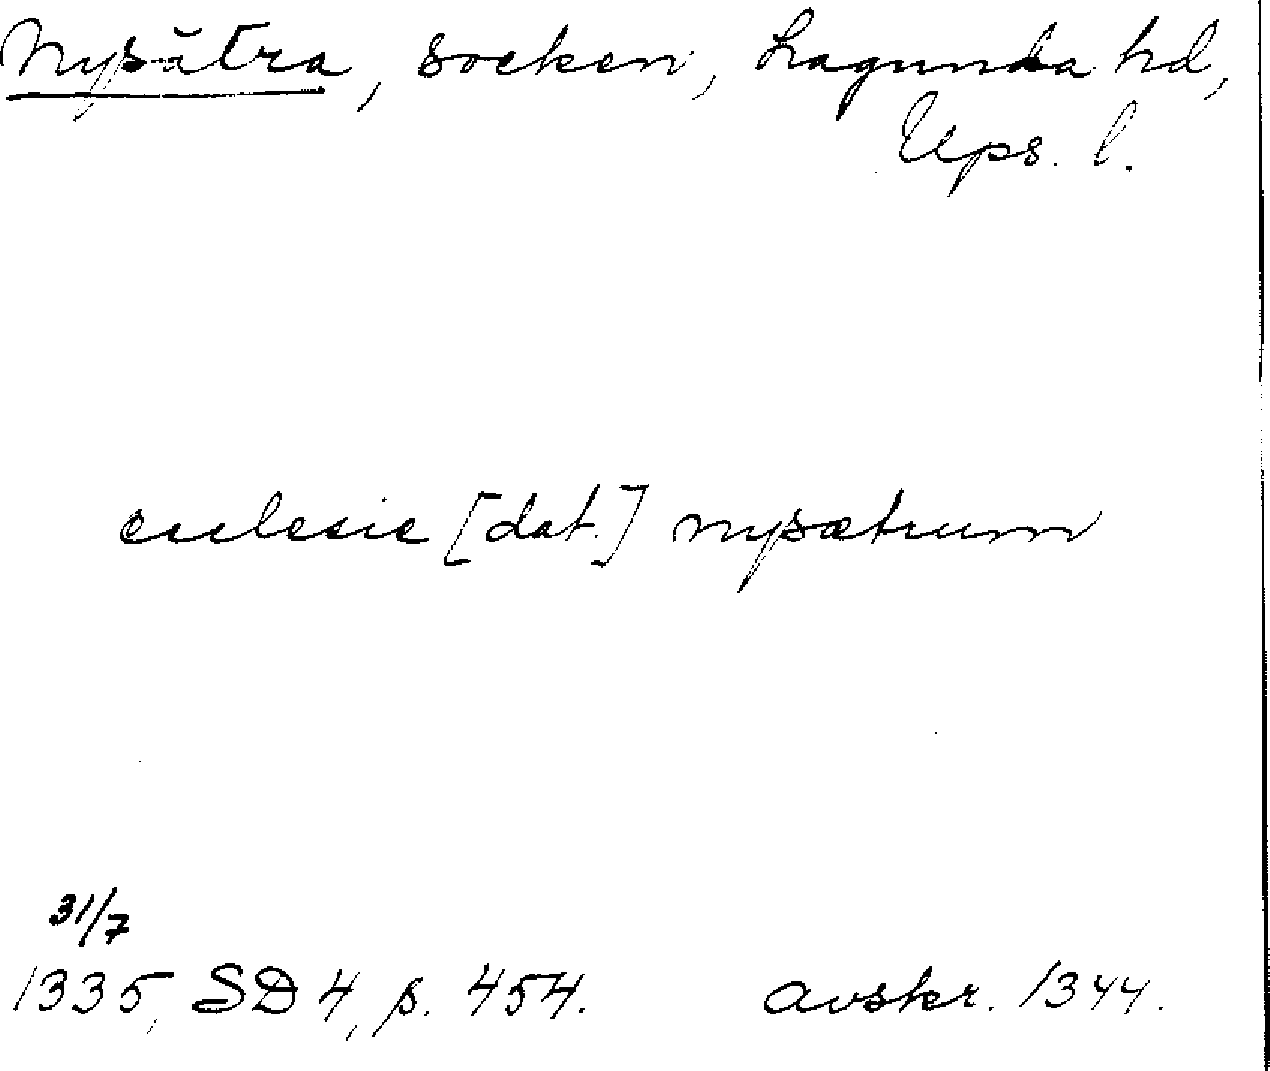 Nysätra, socken, Lagunda hd,
Ups. l.
ecclesie [dat.] nysætrum
31/7
1335, SD 4, s. 454. avskr. 1344.